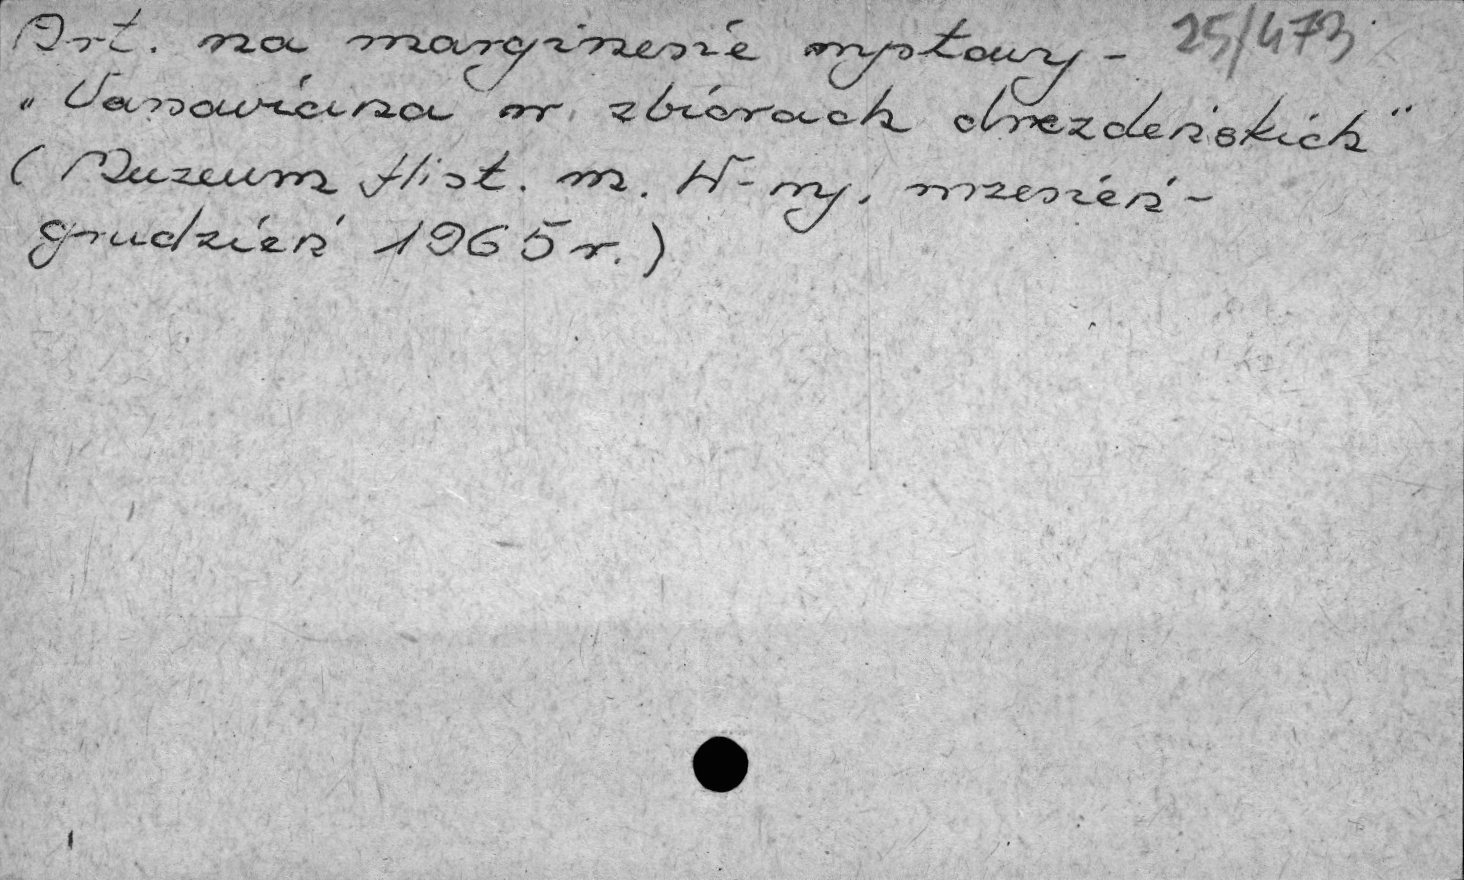 Art. na marginesie wystawy - 25/473
„Varsaviana w zbiorach drezdeńskich"
(Muzeum Hist. m. W-wy, wrzesień-
grudzień 1965 r.)